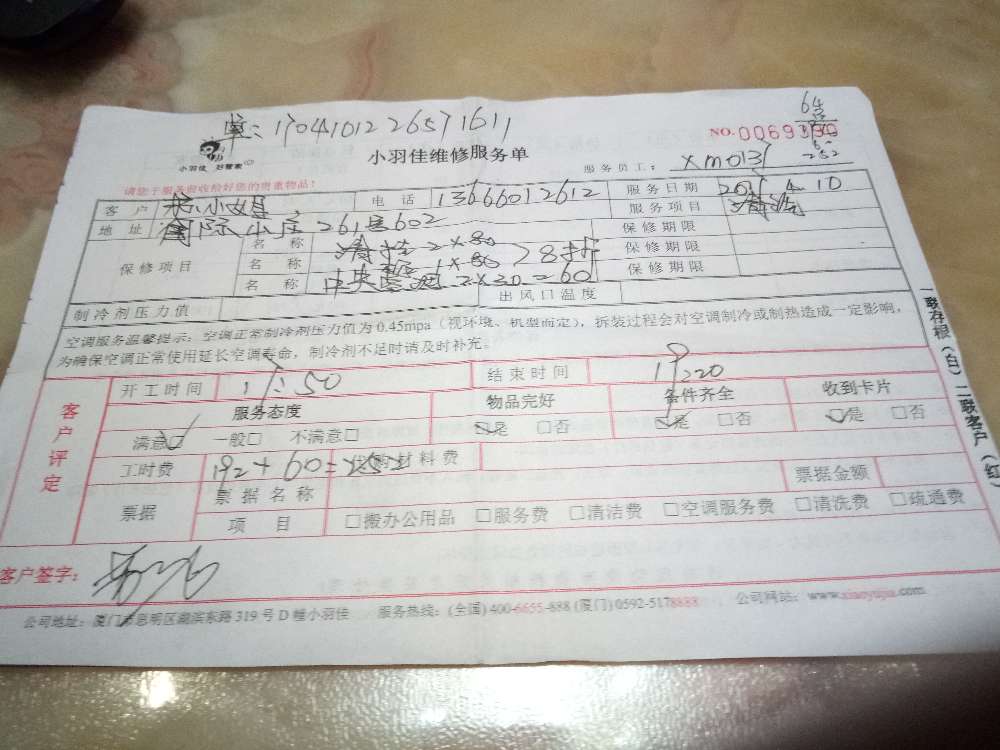 单:1704101226571611
64
小羽佳 好管家
小羽佳维修服务单
NO.
服务员工: xm0137
252
请您于服务前收给好您的贵重物品!
客 户 小姐 电 话 13666012612 服务日期 4 10
地 址 国际 261号602 服务项目 清洗
保修项目 名 称 2×80 保修期限
名 称 1×80 >8折 保修期限
名 称 中央空调 2×30=60 保修期限
制冷剂压力值 出风口温度
空调服务温馨提示:空调正常制冷剂压力值为0.45mpa(视环境、机型而定),拆装过程会对空调制冷或制热造成一定影响,
为确保空调正常使用延长空调寿命,制冷剂不足时请及时补充。
客户评定
开工时间 :50 结束时间
服务态度 物品完好 备件齐全 收到卡片
满意□ 一般□ 不满意□ □是 □否 □是 □否 □是 □否
工时费 192+60= 代购材料费
票据 票据名称 票据金额
项 目 □搬办公用品 □服务费 □清洁费 □空调服务费 □清洗费 □疏通费
客户签字:
公司地址:厦门市思明区湖滨东路319号D幢小羽佳 服务热线:(全国)400-6655-888(厦门)0592-5178888 公司网站:www.xiaoyujia.com
一联存根(白)二联客户(红)